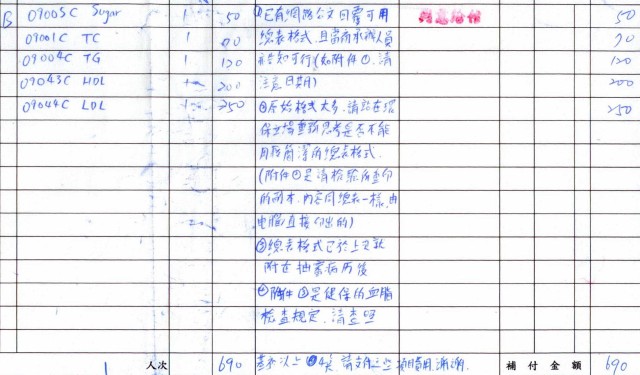 B 09005C Sugar 1 50 ①已有網路公文回需可用 同意給付 50
09001C TC 1 70 總表格式,且當前承辦人員 70
09004C TG 1 120 告知可行(如附件①,請 120
09043C HDL 1 200 注意日期) 200
09044C LDL 1 250 ②原始格式太多,請站在環 250
保立場重新思考是否不能
用較簡潔的總表格式.
(附件①是清檢驗所查印
的副本,內容同總表一樣,由
電腦直接印出的)
③總表格式已於上次就
附在抽審病历後
④附件③是健保的血脂
檢查規定,請查明
人次 1 690 基於以上4点,請支付這些項目費用,謝謝. 補付金額 690